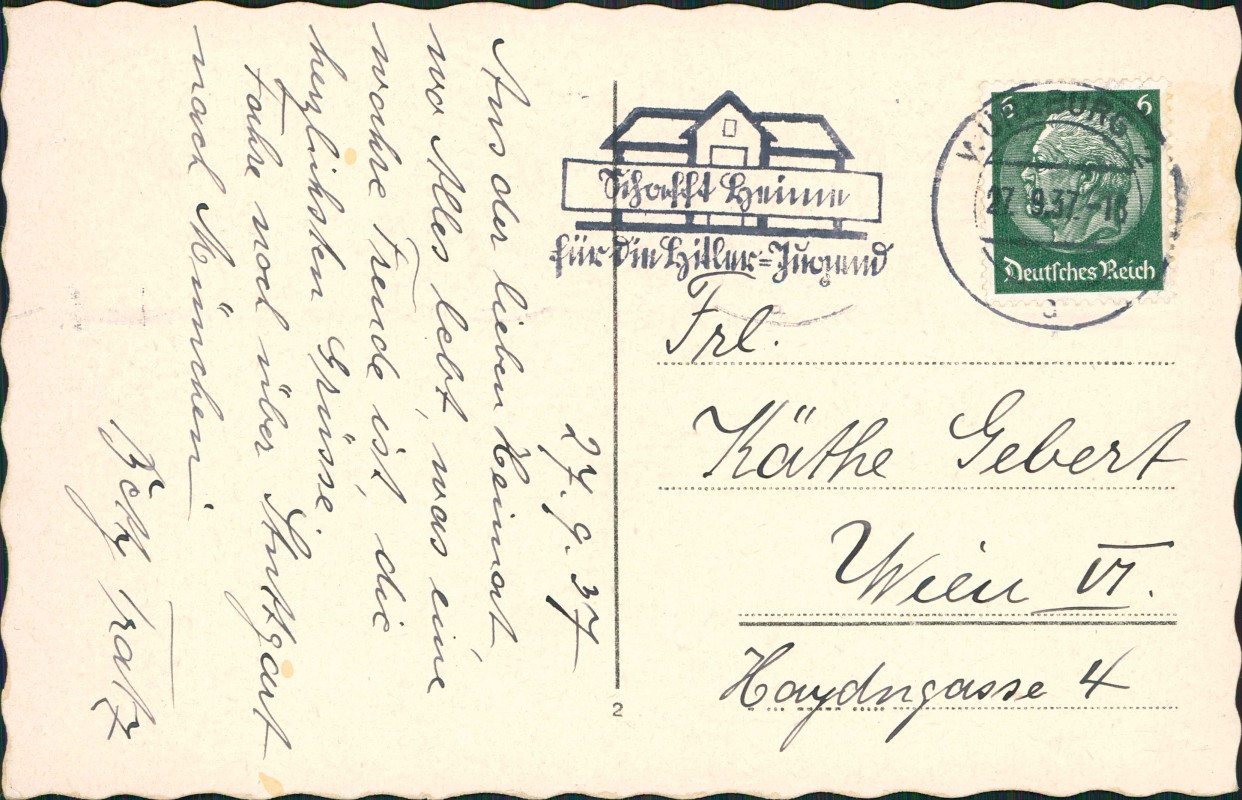 27. 9. 37
Aus der lieben Heimat,
wo Alles lebt, was eine
wahre Freude ist, die
herzlichsten Grüsse.
Fahre noch über Stuttgart
nach München.
Schafft Heime
für die Hitler=Jugend
27. 9.37.-18
6 6
Deutsches Reich
Frl.
Käthe Gebert
Wien VI.
Haydngasse 4
2